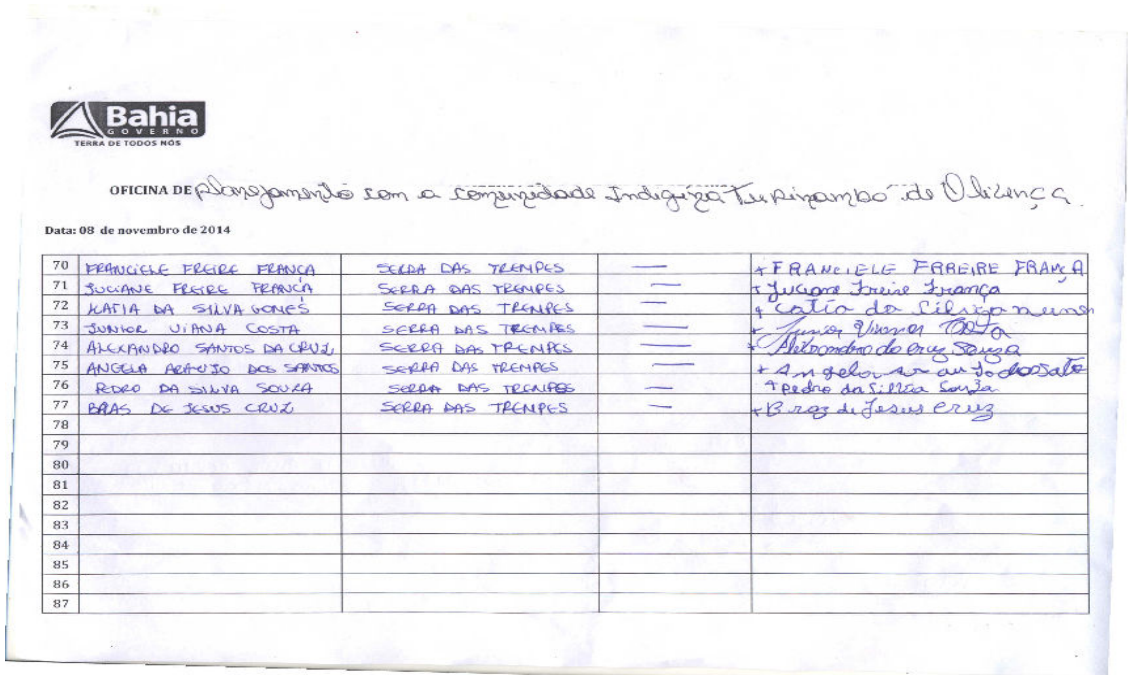 Bahia
GOVERNO
TERRA DE TODOS NÓS
OFICINA DE Planejamento com a comunidade Indigiza Tupinambo de Olivença
Data: 08 de novembro de 2014
70 FRANCIELE FREIRE FRANCA SERRA DAS TREMPES — + FRANCIELE FRREIRE FRANÇA
71 JUCIANE FREIRE FRANCA SERRA DAS TREMPES — + Juciane Freire França
72 KATIA DA SILVA GOMES SERRA DAS TREMPES — + Catia da nunes
73 JUNIOR VIANA COSTA SERRA DAS TREMPES — + Junior Costa
74 ALEXANDRO SANTOS DA CRUZ SERRA DAS TREMPES — + da cruz Souza
75 ANGELA ARAUJO DOS SANTOS SERRA DAS TREMPES — + Angela
76 PEDRO DA SILVA SOUZA SERRA DAS TREMPES — + Pedro da Silva Souza
77 BRAS DE JESUS CRUZ SERRA DAS TREMPES — + Braz de Jesus Cruz
78
79
80
81
82
83
84
85
86
87